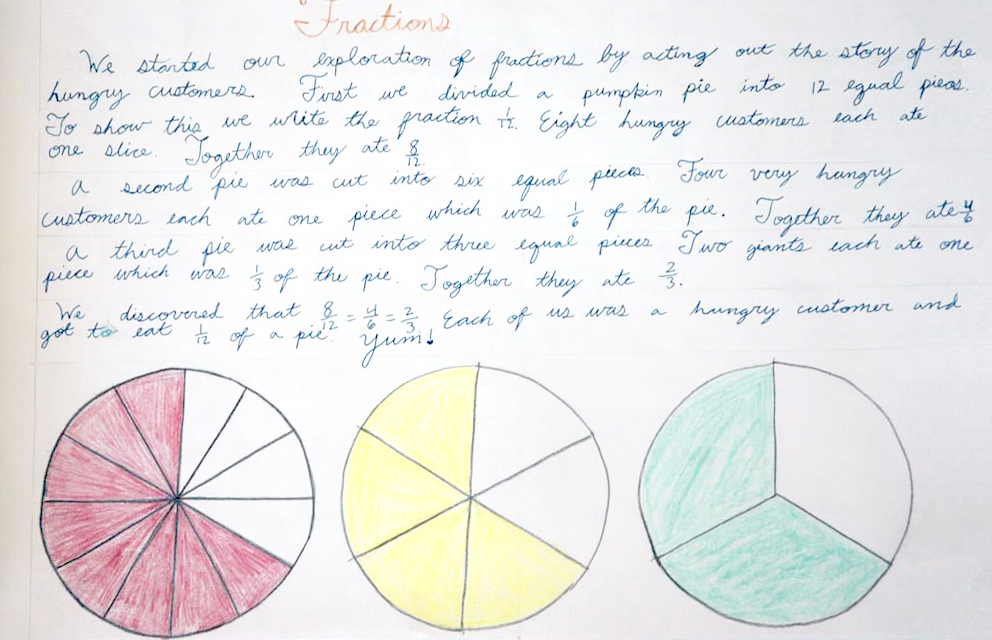 Fractions
We started our exploration of fractions by acting out the story of the
hungry customers. First we divided a pumpkin pie into 12 equal pieces.
To show this we write the fraction 1/12. Eight hungry customers each ate
one slice. Together they ate 8/12.
A second pie was cut into six equal pieces. Four very hungry
customers each ate one piece which was 1/6 of the pie. Together they ate 4/6
A third pie was cut into three equal pieces. Two giants each ate one
piece which was 1/3 of the pie. Together they ate 2/3.
We discovered that 8/12 = 4/6 = 2/3. Each of us was a hungry customer and
got to eat 1/12 of a pie. Yum!